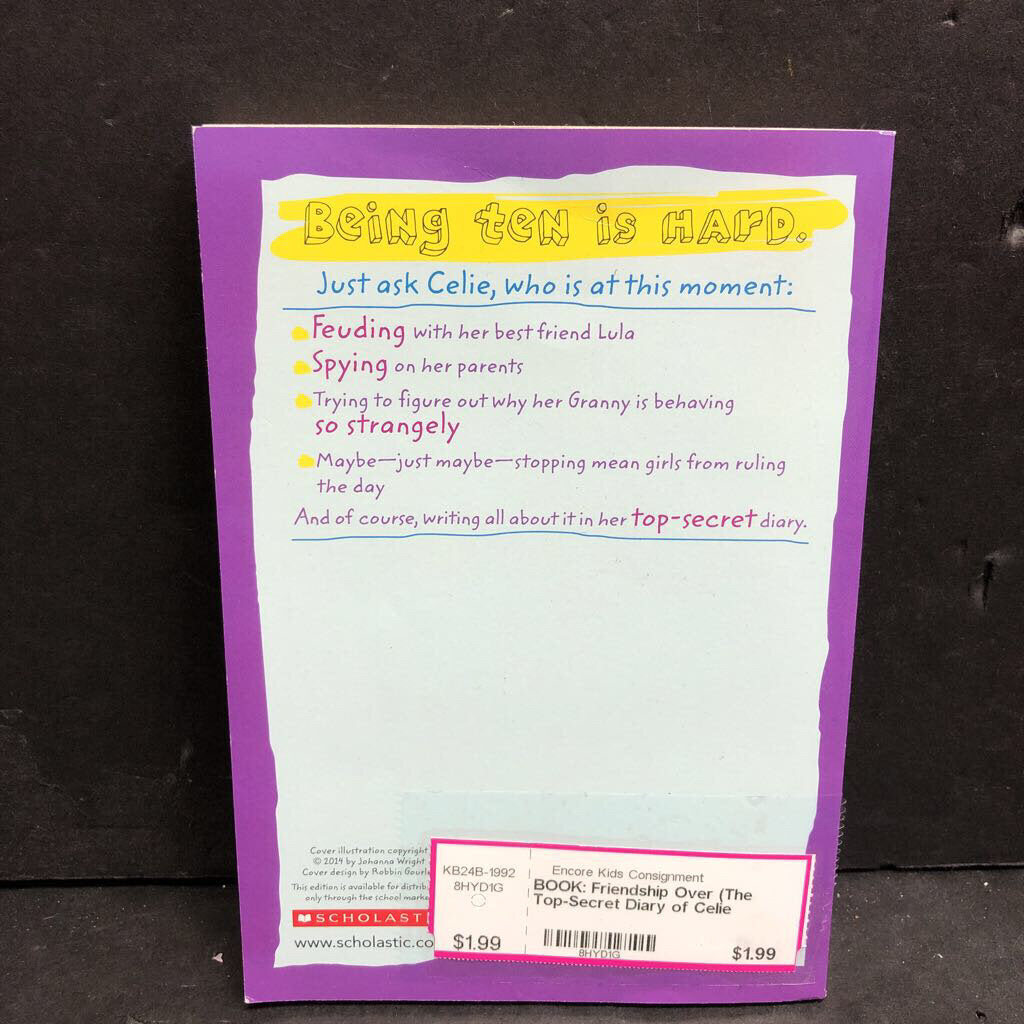 Being ten is hard.
Just ask Celie, who is at this moment:
Feuding with her best friend Lula
Spying on her parents
Trying to figure out why her Granny is behaving
so strangely
Maybe—just maybe—stopping mean girls from ruling
the day
And of course, writing all about it in her top-secret diary.
Cover illustration copyright
© 2014 by Johanna Wright
Cover design by Robbin
This edition is available for
only through the school
SCHOLAST
www.scholastic.co
KB24B-1992
8HYD1G
$1.99
Encore Kids Consignment
BOOK: Friendship Over (The
Top-Secret Diary of Celie
8HYD1G
$1.99